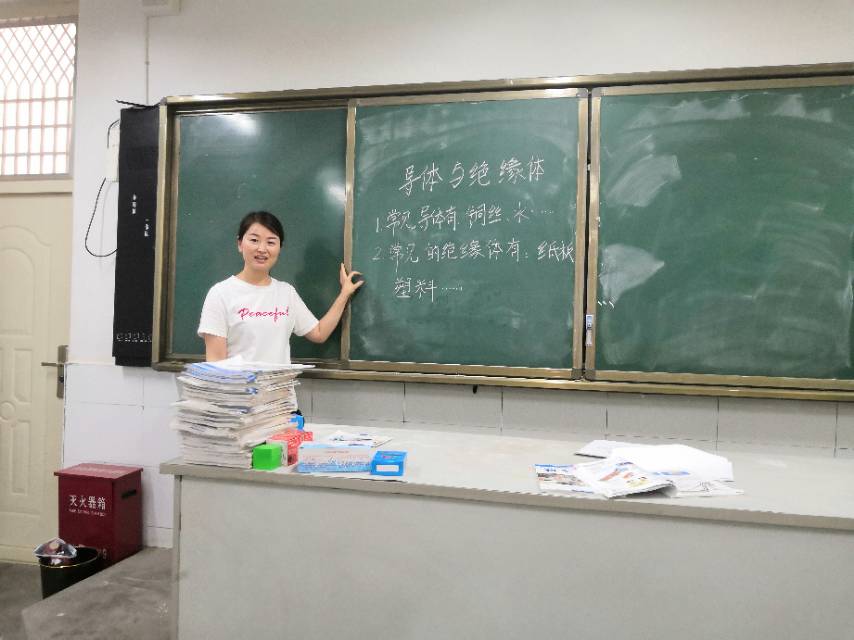 导体与绝缘体
1.常见导体有:铜丝、水……
2.常见的绝缘体有:纸板
塑料……
Peaceful
灭火器箱